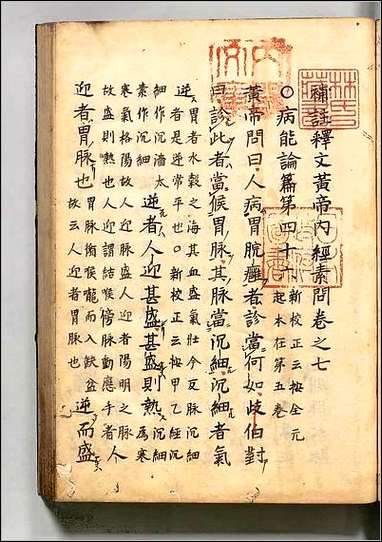 補註釋文黃帝内經素問卷之七
○病能論篇第四十六 新校正云按全元
起本在第五卷
黃帝問曰人病胃脘癰者診當何如歧伯對
曰診此者當候胃脉其脉當沉細沉細者氣
逆 胃者水穀之海其血盛氣壯今反脉沉細
者是逆常平也○新校正云按甲乙經沉
細作沉濇太
素作沉細 逆者人迎甚盛甚盛則熱 沉細爲寒
寒氣格陽故人迎脉盛人迎者陽明之脉
故盛則熱也人迎謂結喉傍脉動應手者人
迎者胃脉也 胃脉循喉嚨而入缺盆
故云人迎者胃脉也 逆而盛